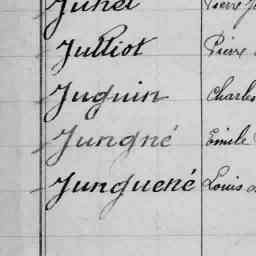 Juhel Pierre
Julliot Pierre
Juguin Charles
Jungné Emile
Junguené Louis